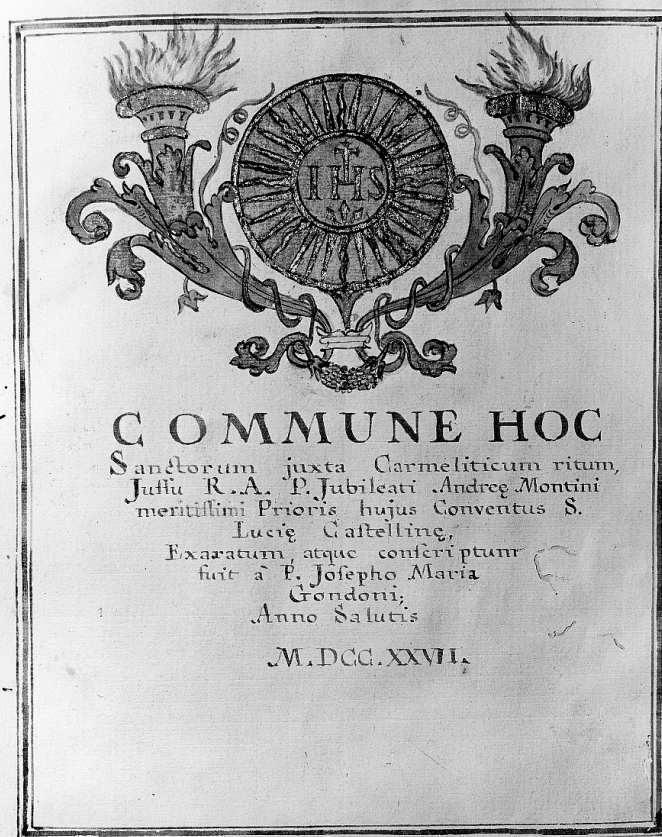 IHS
COMMUNE HOC
Sanctorum juxta Carmeliticum ritum,
Juſſu R. A. P. Jubileati Andreę Montini
meritiſſimi Prioris hujus Conventus S.
Lucię Caſtellinę,
Exaratum atque conſcriptum
fuit â P. Joſepho Maria
Gondoni;
Anno Salutis
M.DCC.XXVII.